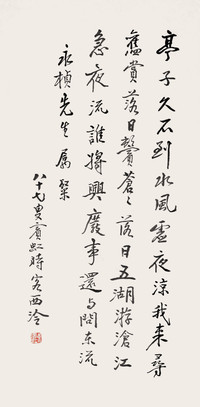 亭子久不到水風虛夜涼我来尋
舊賞落日鬢蒼蒼落日五湖游滄江
急夜流誰將興廢事還與問東流
永楨先生屬粲
八十七叟賓虹時客西泠